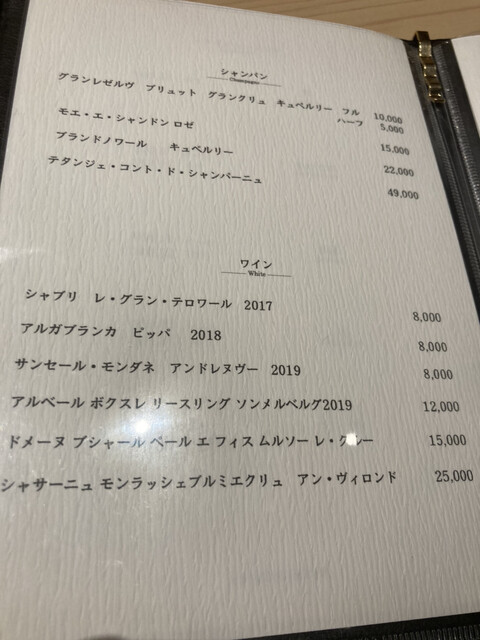 シャンパン
Champagne
グランレゼルヴ ブリュット グランクリュ キュペルリー フル 10,000
ハーフ 5,000
モエ・エ・シャンドン ロゼ 15,000
ブランドノワール キュペルリー 22,000
テタンジェ・コント・ド・シャンパーニュ 49,000
ワイン
White
シャブリ レ・グラン・テロワール 2017 8,000
アルガブランカ ピッパ 2018 8,000
サンセール・モンダネ アンドレヌヴー 2019 8,000
アルベール ボクスレ リースリング ソンメルベルグ2019 12,000
ドメーヌ ブシャール ペール エ フィス ムルソー レ・ 15,000
シャサーニュ モンラッシェプルミエクリュ アン・ヴィロンド 25,000